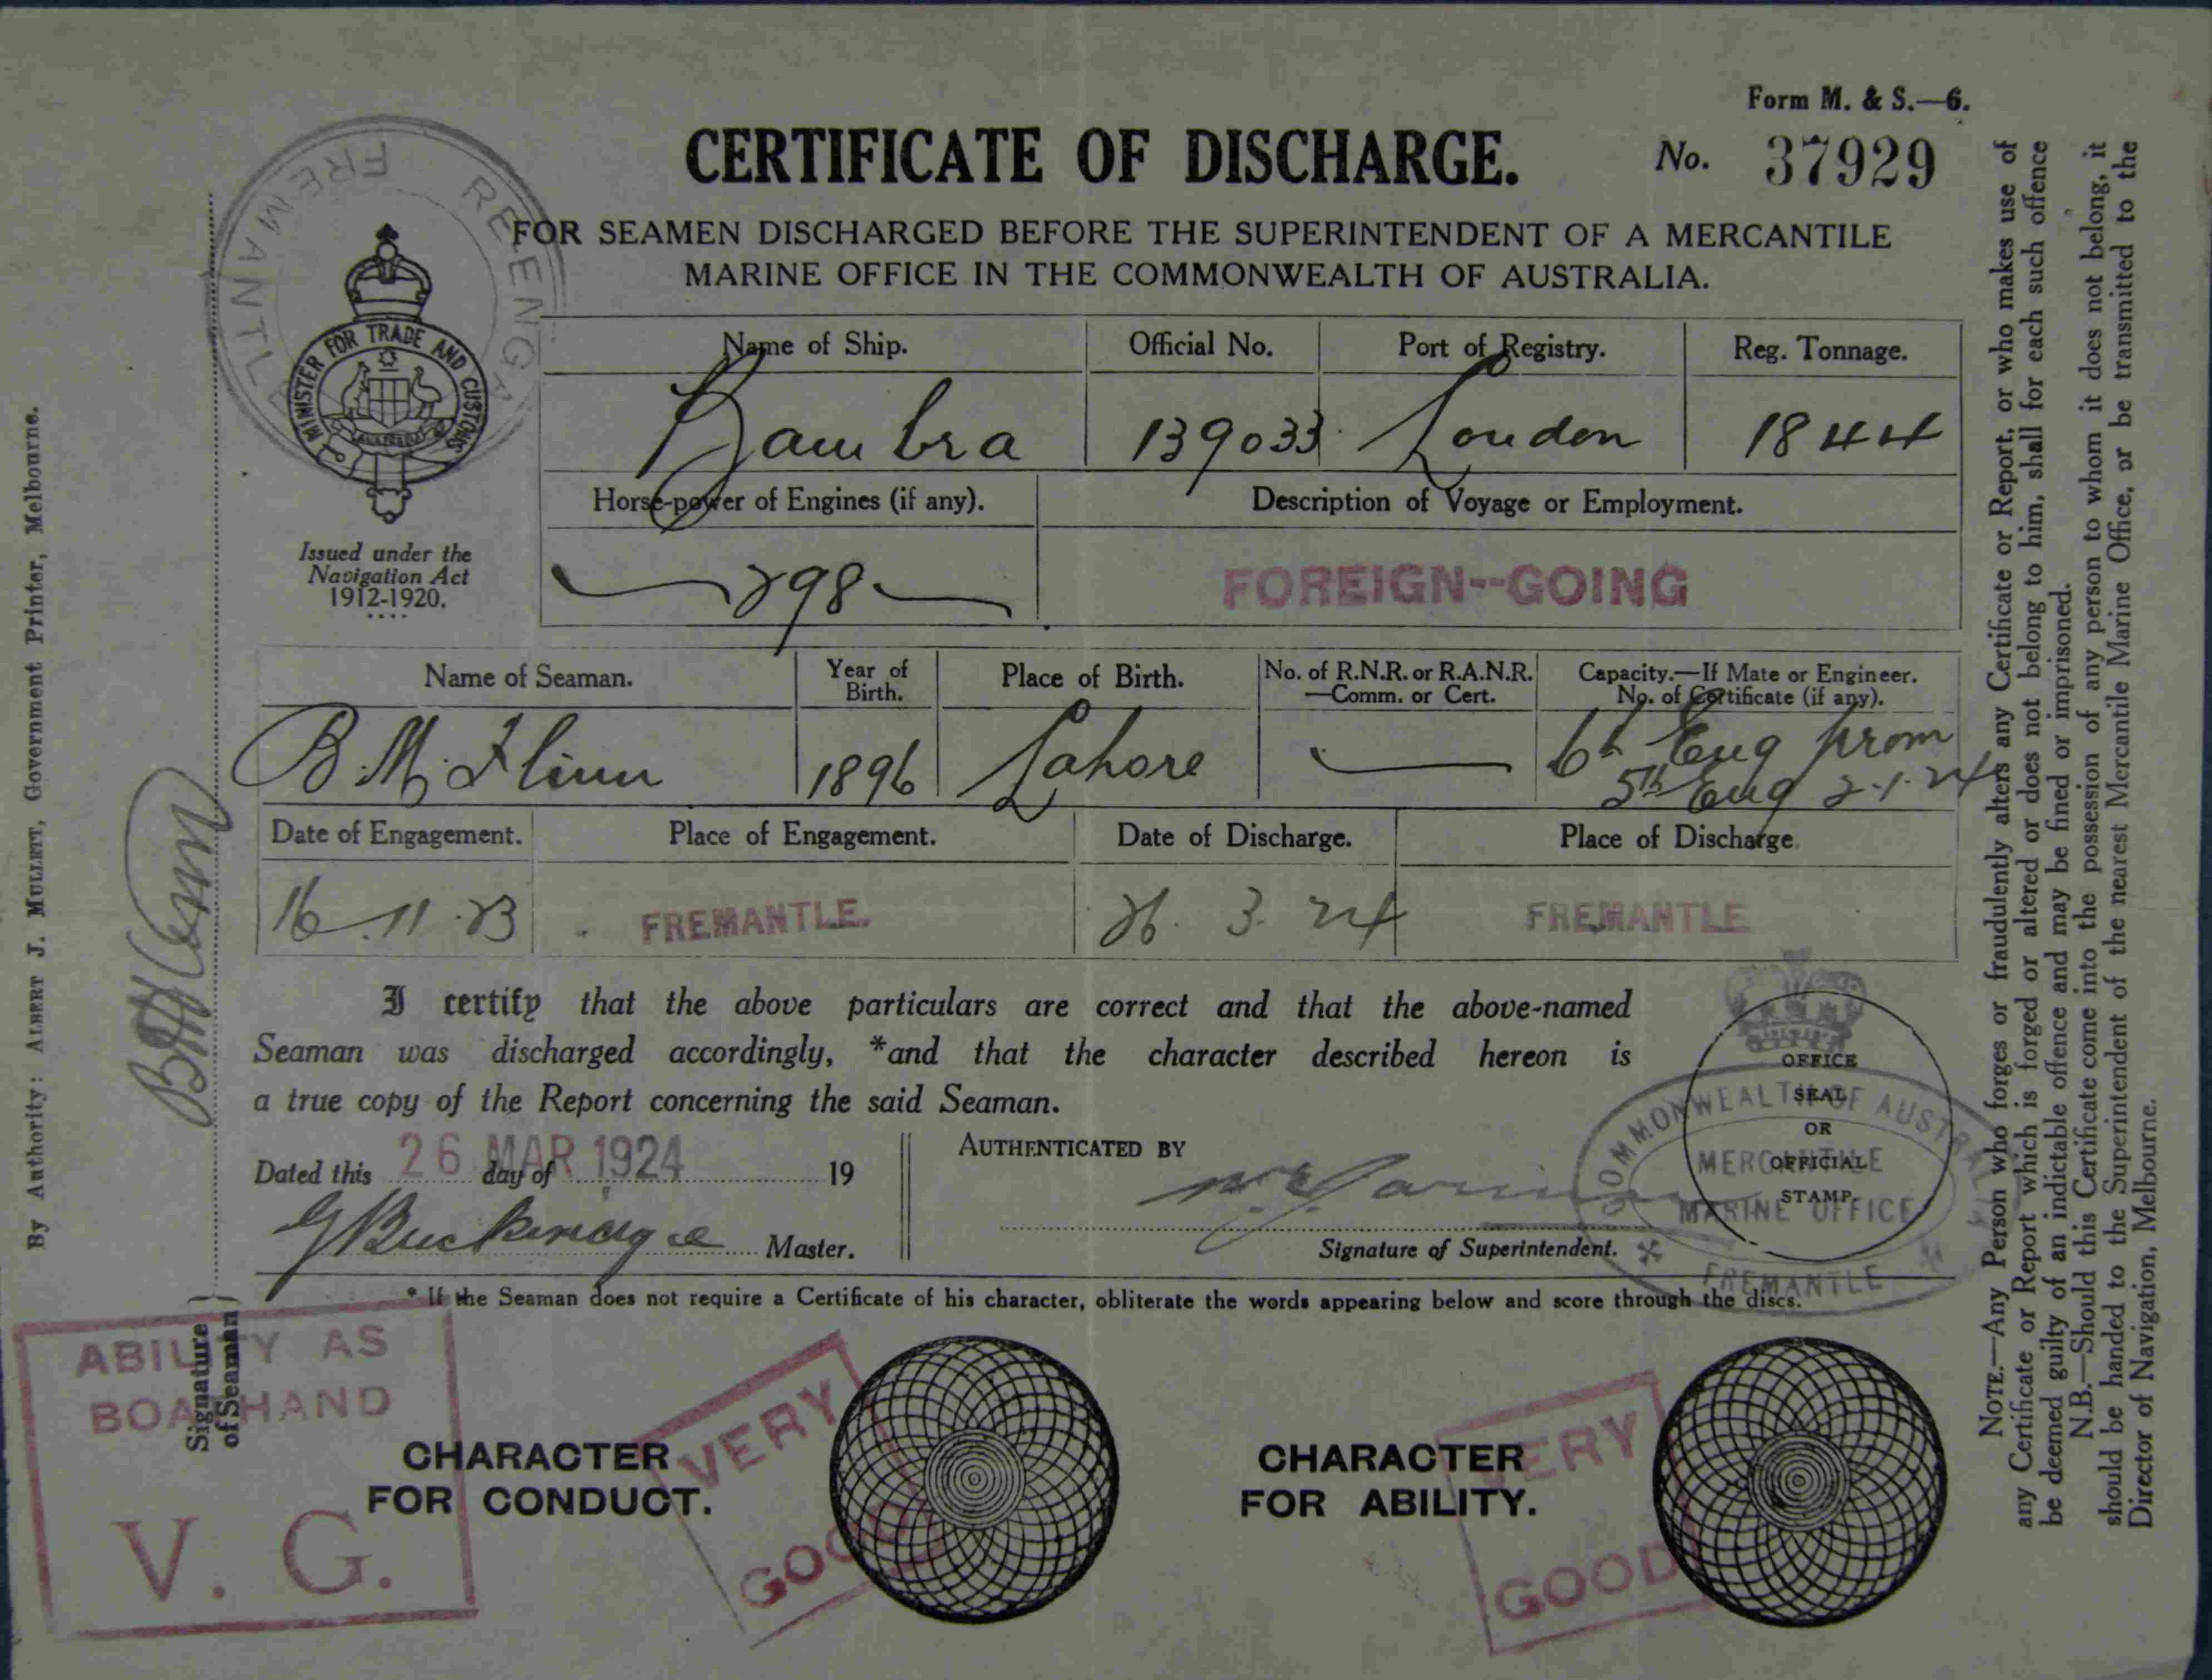 Form M. & S.—6.
CERTIFICATE OF DISCHARGE.
No. 37929
FOR SEAMEN DISCHARGED BEFORE THE SUPERINTENDENT OF A MERCANTILE
MARINE OFFICE IN THE COMMONWEALTH OF AUSTRALIA.
FREMANTLE
MINISTER FOR TRADE AND CUSTOMS
AUSTRALIA
Issued under the
Navigation Act
1912-1920.
Name of Ship. Official No. Port of Registry. Reg. Tonnage.
Bambra 139033 London 1844
Horse-power of Engines (if any). Description of Voyage or Employment.
298 FOREIGN--GOING
Name of Seaman. Year of Birth. Place of Birth. No. of R.N.R. or R.A.N.R. —Comm. or Cert. Capacity.—If Mate or Engineer. No. of Certificate (if any).
B. M. Flinn 1896 Lahore 6th Eng from
5th Eng 2-1-24
Date of Engagement. Place of Engagement. Date of Discharge. Place of Discharge.
16.11.23 FREMANTLE. 26.3.24 FREMANTLE
I certify that the above particulars are correct and that the above-named
Seaman was discharged accordingly, *and that the character described hereon is
a true copy of the Report concerning the said Seaman.
Dated this 26 day of MAR 1924 19
AUTHENTICATED BY
Master.
Signature of Superintendent.
OFFICE
SEAL
OR
OFFICIAL
STAMP.
COMMONWEALTH OF AUSTRALIA
MERCANTILE
MARINE OFFICE
FREMANTLE
* If the Seaman does not require a Certificate of his character, obliterate the words appearing below and score through the discs.
ABILITY AS
BOATHAND
V. G.
Signature
of Seaman
CHARACTER
FOR CONDUCT.
VERY
GOOD
CHARACTER
FOR ABILITY.
VERY
GOOD
By Authority: ALBERT J. MULLETT, Government Printer, Melbourne.
NOTE.—Any Person who forges or fraudulently alters any Certificate or Report, or who makes use of
any Certificate or Report which is forged or altered or does not belong to him, shall for each such offence
be deemed guilty of an indictable offence and may be fined or imprisoned.
N.B.—Should this Certificate come into the possession of any person to whom it does not belong, it
should be handed to the Superintendent of the nearest Mercantile Marine Office, or be transmitted to the
Director of Navigation, Melbourne.